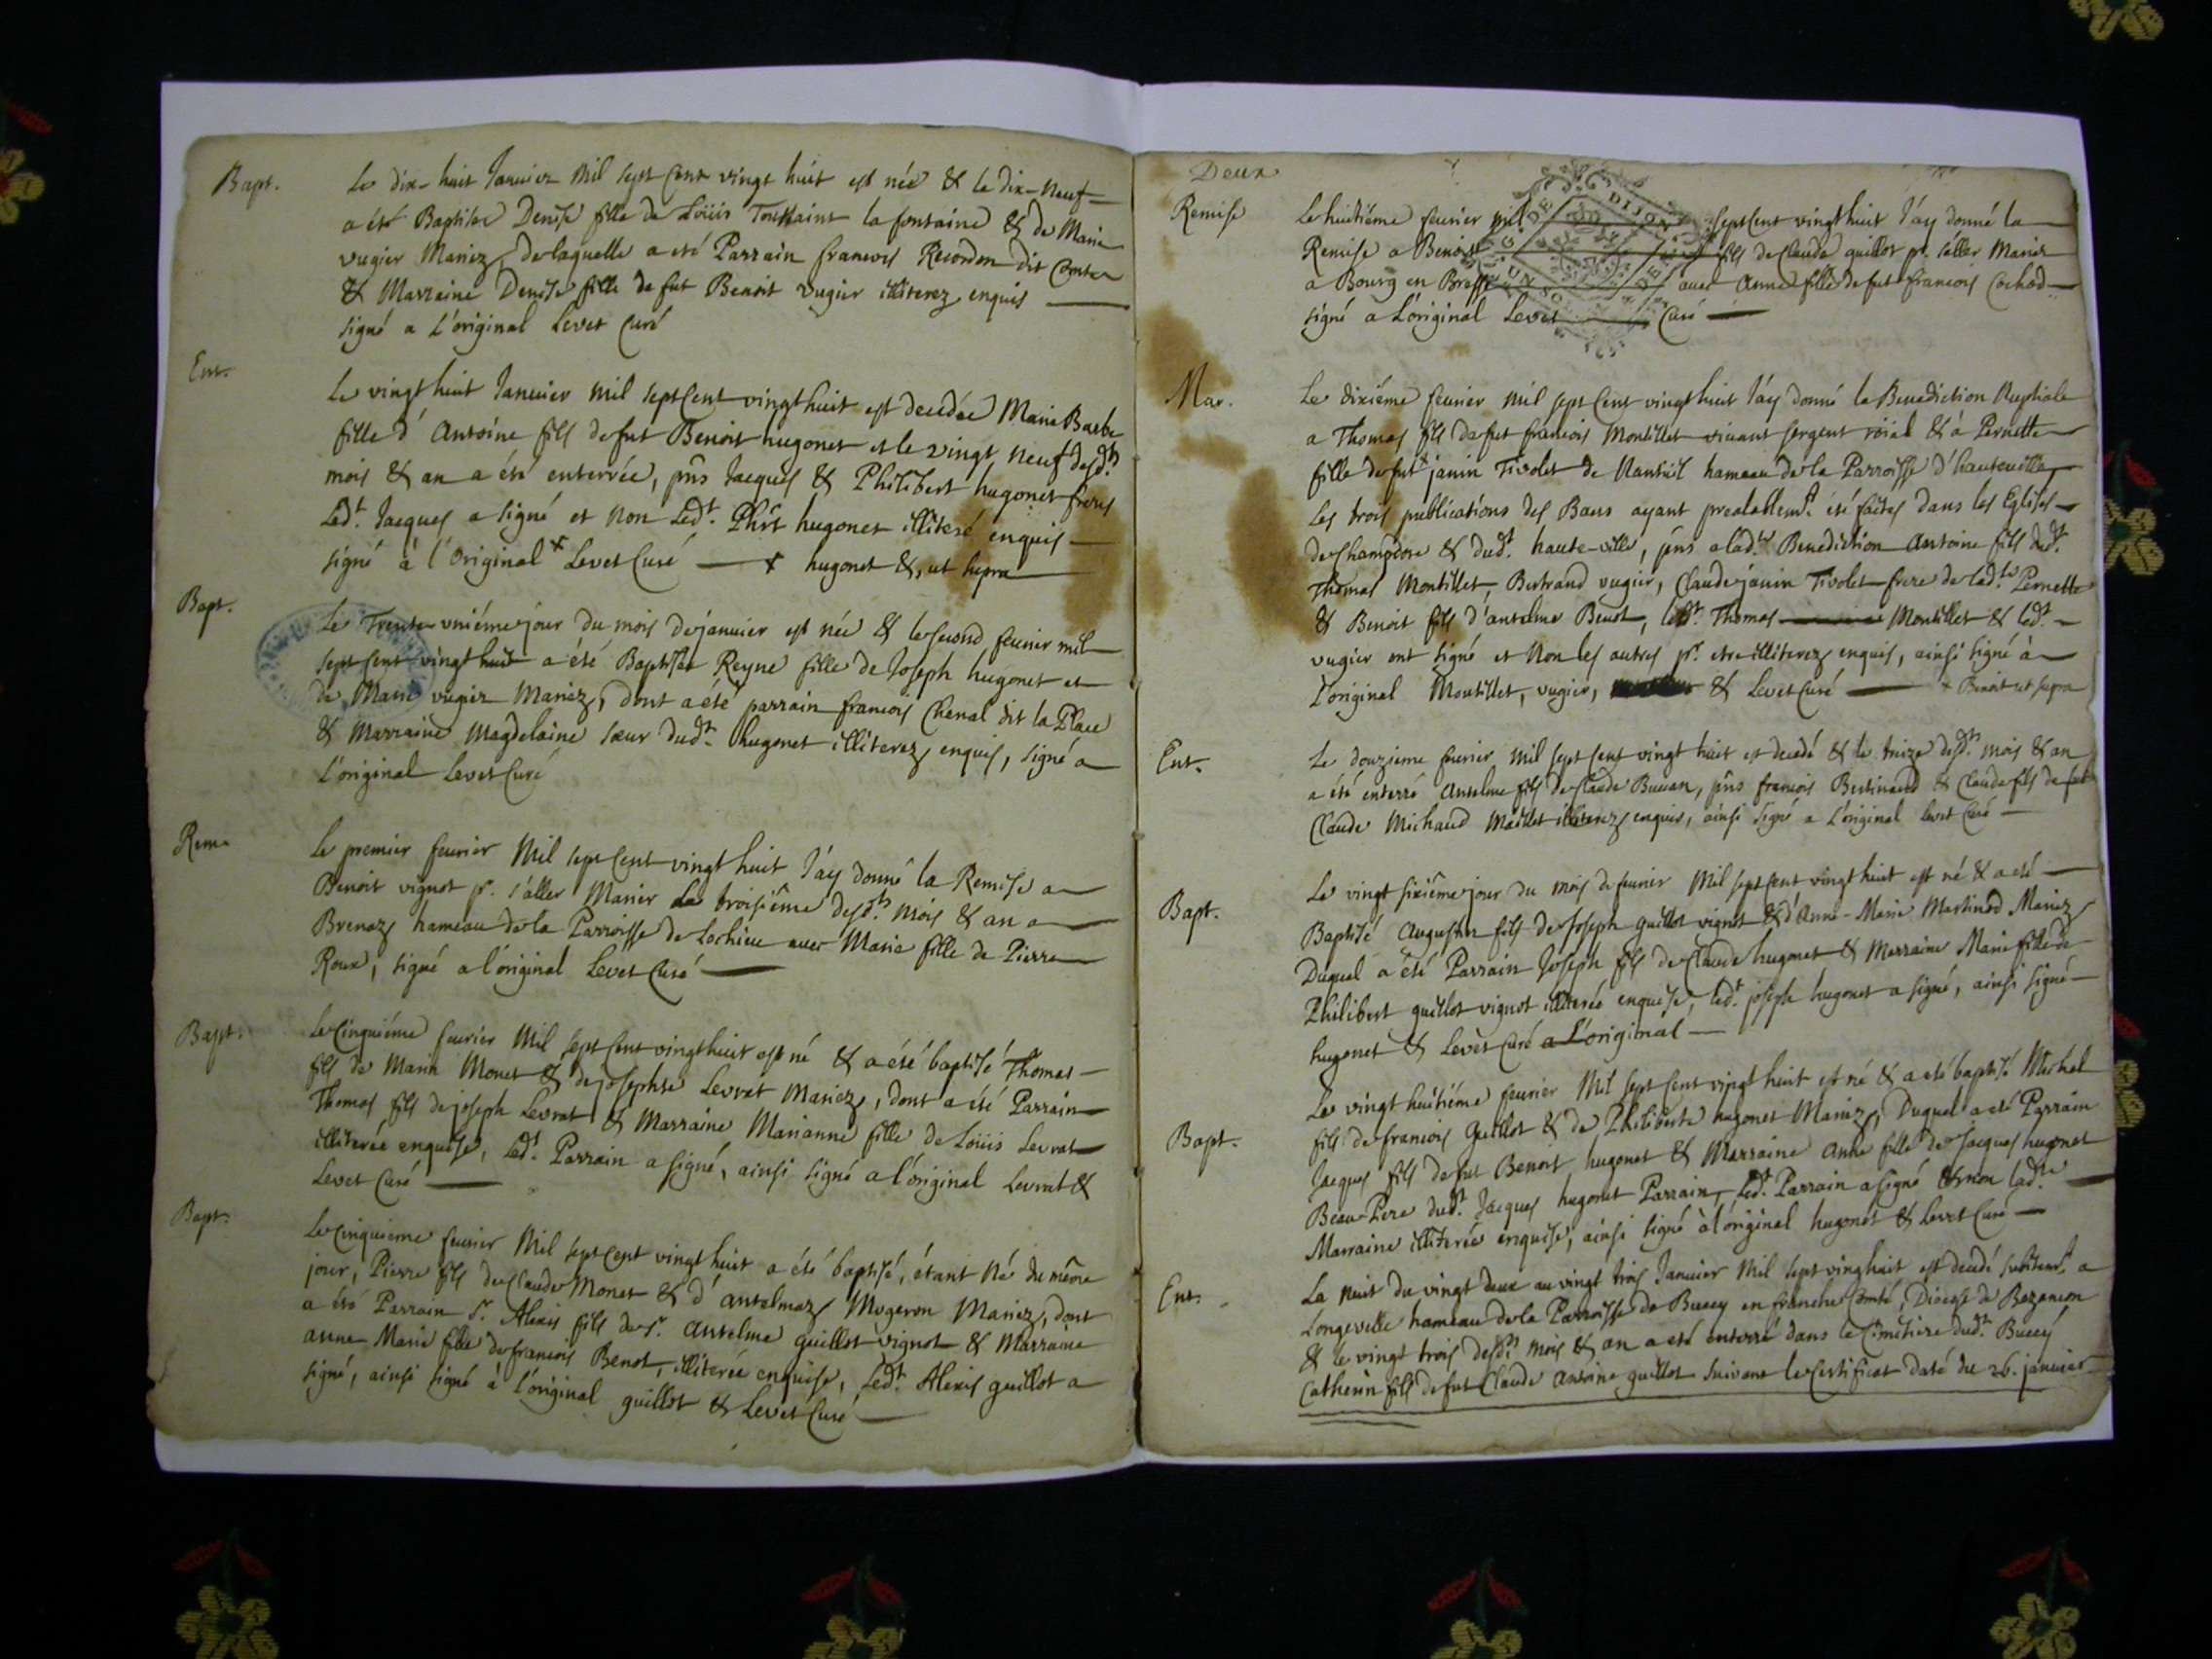 Bapt.
Le dix-huit Janvier Mil sept Cent vingt huit est née & le dix-neuf
a été Baptisée Denise fille de Loüis Toussaint la fontaine & de Marie
vugier Mariez, de laquelle a été Parrain francois Recordon dit Comte
& Marraine Denise fille de fut Benoit vugier illiterez enquis
signé a l'original Levet Curé
Ent.
Le vingt huit Janvier mil sept Cent vingt huit est decedée Marie Barbe
fille d'Antoine fils de fut Benoit hugonet et le vingt neuf desdts
mois & an a été enterrée, pns Jacques & Philibert hugonet freres
Ledt. Jacques a signé et non Ledt. Phlt hugonet illiteré enquis
signé à l'Original + Levet Curé + hugonet &, ut supra
Bapt.
Le Trente-uniéme jour du mois de janvier est née & le second feurier mil
sept Cent vingt huit a été Baptisée Reyne fille de Joseph hugonet et
de Marie vugier Mariez, dont a été parrain francois Chenal dit la Place
& Marraine Magdelaine sœur dudt. hugonet illiterez enquis, signé a
l'original Levet Curé
Rem.
Le premier feurier Mil sept Cent vingt huit J'ay donné la Remise a
Benoit vignot pr. s'aller Marier le troisiême desdts. mois & an a
Brenaz hameau de la Parroisse de Lochieu avec Marie fille de Pierre
Roux, signé a l'original Levet Curé
Bapt.
Le Cinquiéme feurier Mil sept Cent vingt huit est né & a été baptisé Thomas
fils de Marin Monet & de josephte Levrat Mariez, dont a été Parrain
Thomas fils de joseph Levrat & Marraine Marianne fille de Loüis Levrat
illiterée enquise, Ledt. Parrain a signé, ainsi signé a l'original Levrat &
Levet Curé
Bapt.
Le Cinquieme feurier Mil sept Cent vingt huit a été baptisé, étant né du même
jour, Pierre fils de Claude Monet & d'antelmaz Mugeron Mariez, dont
a été Parrain Sr. Alexis fils de Sr. Antelme guillot vignot & Marraine
anne Marie fille de francois Benot, illiterée enquise, Ledt. Alexis guillot a
signé, ainsi signé à l'original guillot & Levet Curé
Deux
Remise
Le huitiéme feurier mil sept Cent vingt huit J'ay donné la
Remise a Benoit fils de Claude guillot pr. s'aller Marier
a Bourg en Bresse avec Anne fille de fut francois Cochod
signé a l'original Levet Curé
DIJON
Mar.
Le dixiéme feurier mil sept Cent vingt huit J'ay donné la Benediction Nuptiale
a Thomas fils de fut francois Montillet vivant sergent roial & à Pernette
fille de fut janin Tivolet de Nantuil hameau de la Parroisse d'hauteuille
Les trois publications des Bans ayant prealablemt. été faites dans les Eglises
de Champdore & dudt. haute-ville, pns a ladte Benediction Antoine fils dudt.
Thomas Montillet, Bertrand vugier, Claude janin Tivolet frere de ladte Pernette
& Benoit fils d'antelme Benot, ledt. Thomas Montillet & ledt.
vugier ont signé et Non les autres pr. etre illiterez enquis, ainsi signé à
l'original Montillet, vugier, & Levet Curé + Benoit ut supra
Ent.
Le douzieme feurier Mil sept Cent vingt huit est decedé & le treize desdts. mois & an
a été enterré Antelme fils de Claude Buuan, pns francois Bertinand & Claude fils de fut
Claude Michaud Maillet illiterez enquis, ainsi signé a l'original Levet Curé
Bapt.
Le vingt sixiéme jour du mois de feurier Mil sept Cent vingt huit est né & a eté
Baptisé Augustin fils de Joseph guillot vignot & d'Anne-Marie Martinod Mariez
Duquel a été Parrain Joseph fils de Claude hugonet & Marraine Marie fille de
Philibert guillot vignot illiterée enquise, ledt. joseph hugonet a signé, ainsi signé
hugonet & Levet Curé a l'original
Bapt.
Le vingt huitiéme feurier Mil sept Cent vingt huit est né & a eté baptisé Michel
fils de francois Guillot & de Philiberte hugonet Mariez, Duquel a eté Parrain
Jacques fils de fut Benoit hugonet & Marraine Anne fille de Jacques hugonet
Beau-Pere dudt. Jacques hugonet Parrain, Ledt. Parrain a signé & non ladte
Marraine illiterée enquise, ainsi signé à l'original hugonet & Levet Curé
Ent.
La Nuit du vingt deux au vingt trois Janvier Mil sept vingt huit est decedé subitemt. a
Longeville hameau de la Parroisse de Bucey en franche Comté, Diocese de Bezancon
& le vingt trois desdts. mois & an a eté enterré dans le Cimetiere dudt. Bucey
Catherin fils de fut Claude Antoine guillot suivant le Certificat daté du 26. janvier